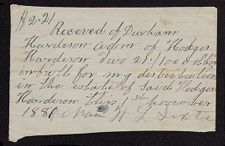 $2.21
Received of Durham
Hardison admr of Hodges
Hardison two 21/100 dollars
in full for my distribution
in the estate of said Hodges
Hardison this 1st November
188